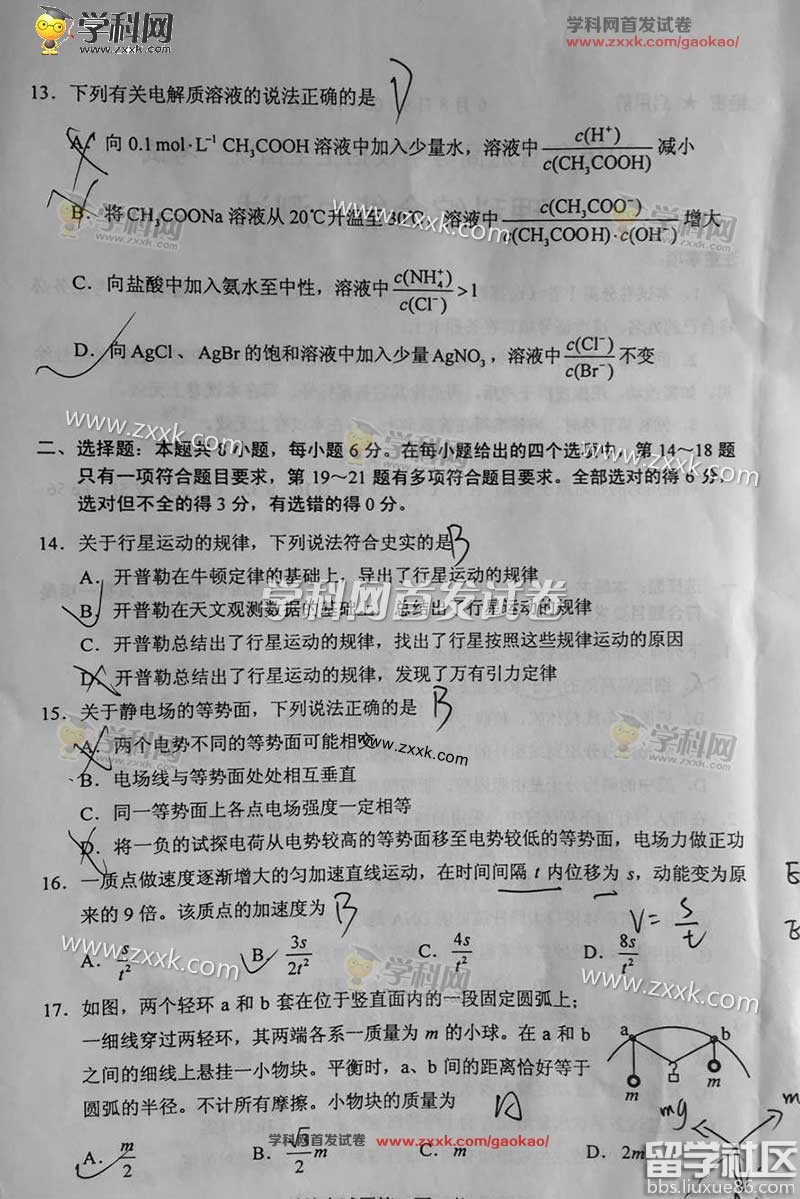 学科网
www.zxxk.com
学科网首发试卷
www.zxxk.com/gaokao/
13. 下列有关电解质溶液的说法正确的是 D
A. 向 0.1 mol·L⁻¹ CH₃COOH 溶液中加入少量水，溶液中 c(H⁺)/c(CH₃COOH) 减小
B. 将CH₃COONa 溶液从 20℃升温至 30℃，溶液中 c(CH₃COO⁻)/c(CH₃COOH)·c(OH⁻) 增大
学科网
zxxk.com
学科网
www.zxxk.com
C. 向盐酸中加入氨水至中性，溶液中 c(NH₄⁺)/c(Cl⁻) >1
D. 向 AgCl、AgBr 的饱和溶液中加入少量 AgNO₃，溶液中 c(Cl⁻)/c(Br⁻) 不变
www.zxxk.com
学科网
二、选择题：本题共 8 小题，每小题 6 分。在每小题给出的四个选项中，第 14～18 题
只有一项符合题目要求，第 19～21 题有多项符合题目要求。全部选对的得 6 分，
www.zxxk.com
选对但不全的得 3 分，有选错的得 0 分。
14. 关于行星运动的规律，下列说法符合史实的是 B
A. 开普勒在牛顿定律的基础上，导出了行星运动的规律
学科网首发试卷
B. 开普勒在天文观测数据的基础上，总结出了行星运动的规律
C. 开普勒总结出了行星运动的规律，找出了行星按照这些规律运动的原因
D. 开普勒总结出了行星运动的规律，发现了万有引力定律
15. 关于静电场的等势面，下列说法正确的是 B
A. 两个电势不同的等势面可能相交
www.zxxk.com
学科网
学科网
B. 电场线与等势面处处相互垂直
C. 同一等势面上各点电场强度一定相等
D. 将一负的试探电荷从电势较高的等势面移至电势较低的等势面，电场力做正功
16. 一质点做速度逐渐增大的匀加速直线运动，在时间间隔 t 内位移为 s，动能变为原
来的 9 倍。该质点的加速度为 B
V = s/t
A. s/t²　B. 3s/2t²　C. 4s/t²　D. 8s/t²
www.zxxk.com
学科网
www.zxxk.com
17. 如图，两个轻环 a 和 b 套在位于竖直面内的一段固定圆弧上；
一细线穿过两轻环，其两端各系一质量为 m 的小球。在 a 和 b
之间的细线上悬挂一小物块。平衡时，a、b 间的距离恰好等于
圆弧的半径。不计所有摩擦。小物块的质量为 A
a b
m m
mg
学科网首发试卷
www.zxxk.com/gaokao/
A. m/2　B. √3/2 m　C. m　D. 2m
留学社区
bbs.liuxue86.com